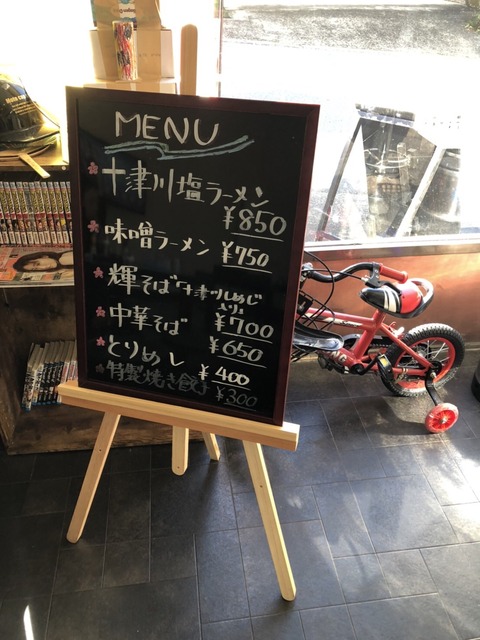 MENU
十津川塩ラーメン
¥850
味噌ラーメン ¥750
輝そば 十津川しめじ
入り
¥700
中華そば
¥650
とりめし ¥400
特製焼き餃子 ¥300